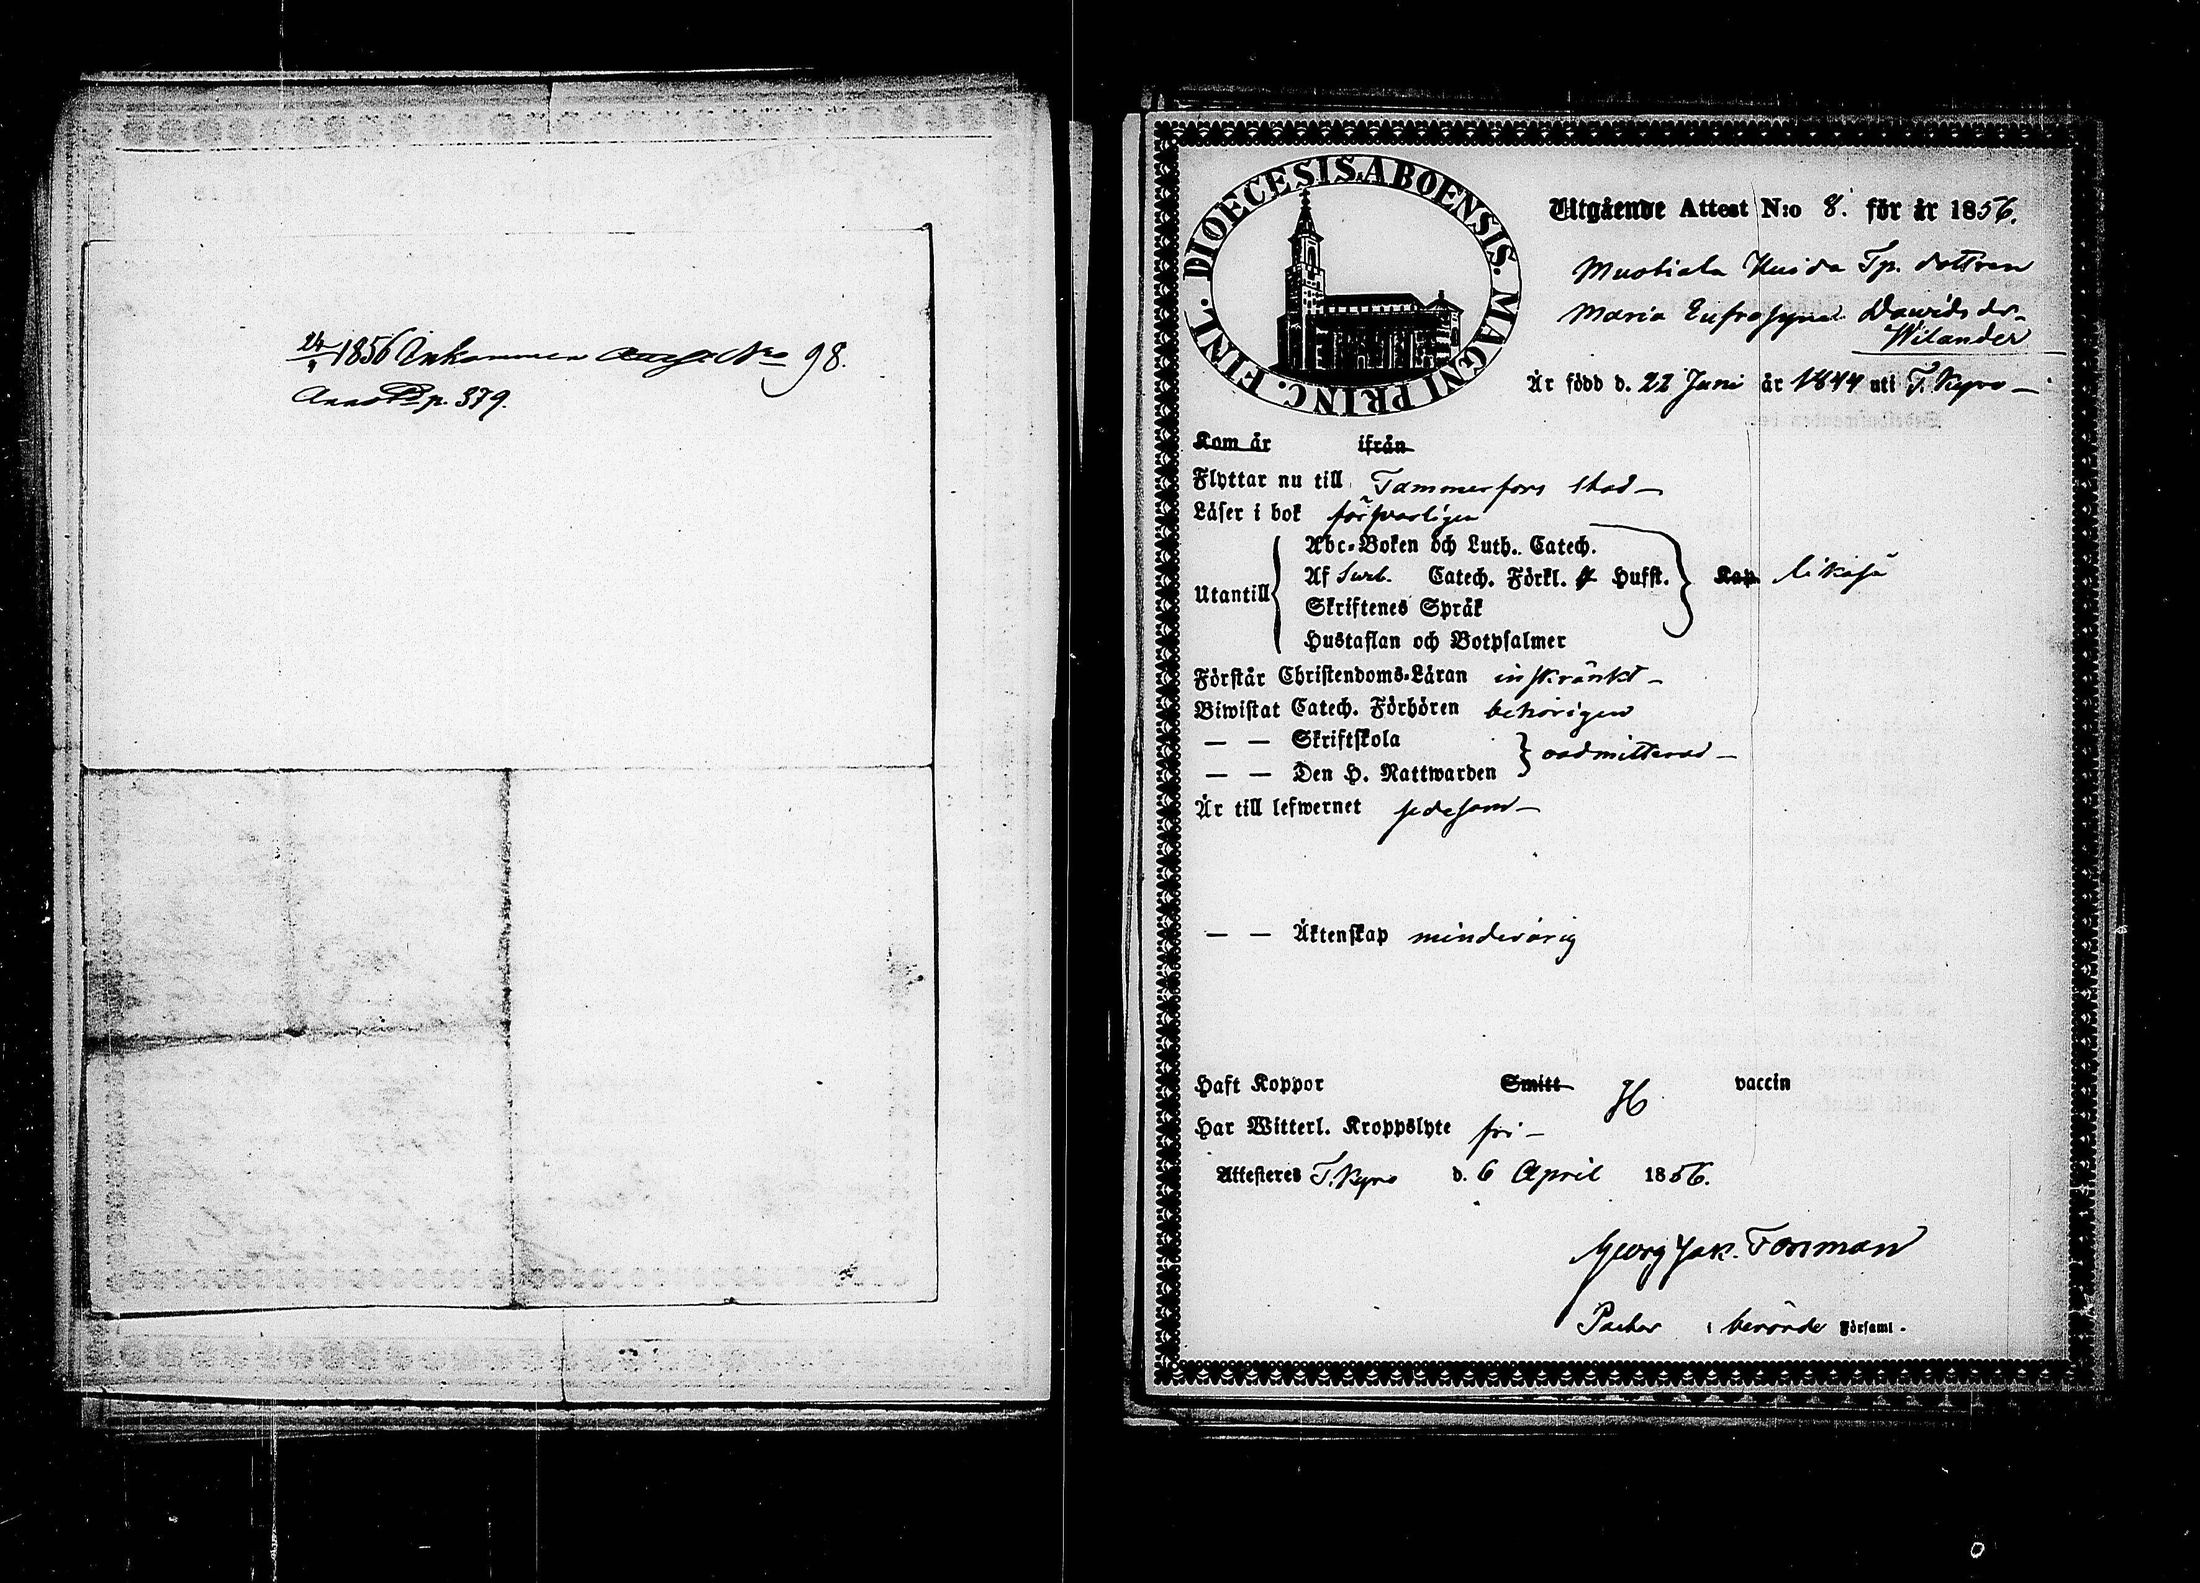 24/9 1856 Inkommen Attest No 98.
Anno p. 379.
DIOECESIS ABOENSIS. MAGNI PRINC. FINL.
Utgående Attest N:o 8. för år 1856.
Muotiala Huida Tp. dottren
Maria Eufrosyna Dawidsdr.
Wilander
Är född d. 22 Juni år 1844 uti T. Kyro —
Kom år ifrån
Flyttar nu till Tammerfors stad —
Läser i bok försvarligen
Utantill
Abc-Boken och Luth. Catech.
Af Catech. Förkl. Hufst. Kap. likaså
Skriftenes Språk
Hustaflan och Botpsalmer
Förstår Christendoms-Läran inskränkt —
Biwistat Catech. Förhören behörigen
— — Skriftskola
— — Den H. Nattwarden oadmitterad —
Är till lefwernet sedesam —
— — Äktenskap minderårig
Haft Koppor Smitt vaccin
Har Witterl. Kroppslyte fri —
Attesteres T. Kyro d. 6 April 1856.
Georg Jak. Forsman
Pastor i berörde Församl.